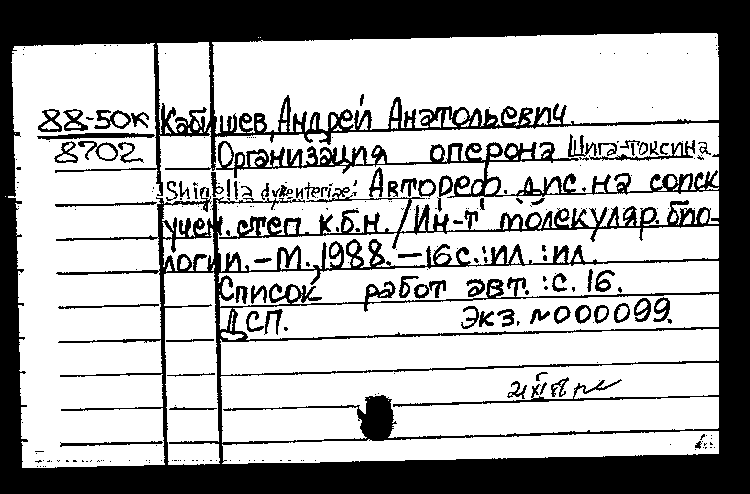 88-50к Кабишев, Андрей Анатольевич.
8702 Организация оперона Шига-токсина
Shigella dysenteriae: Автореф. дис. на соиск
учен. степ. к.б.н. / Ин-т молекуляр. био-
логии. – М., 1988. – 16 с. : ил. : ил.
Список работ авт. : с. 16.
ДСП. Экз. №000099.